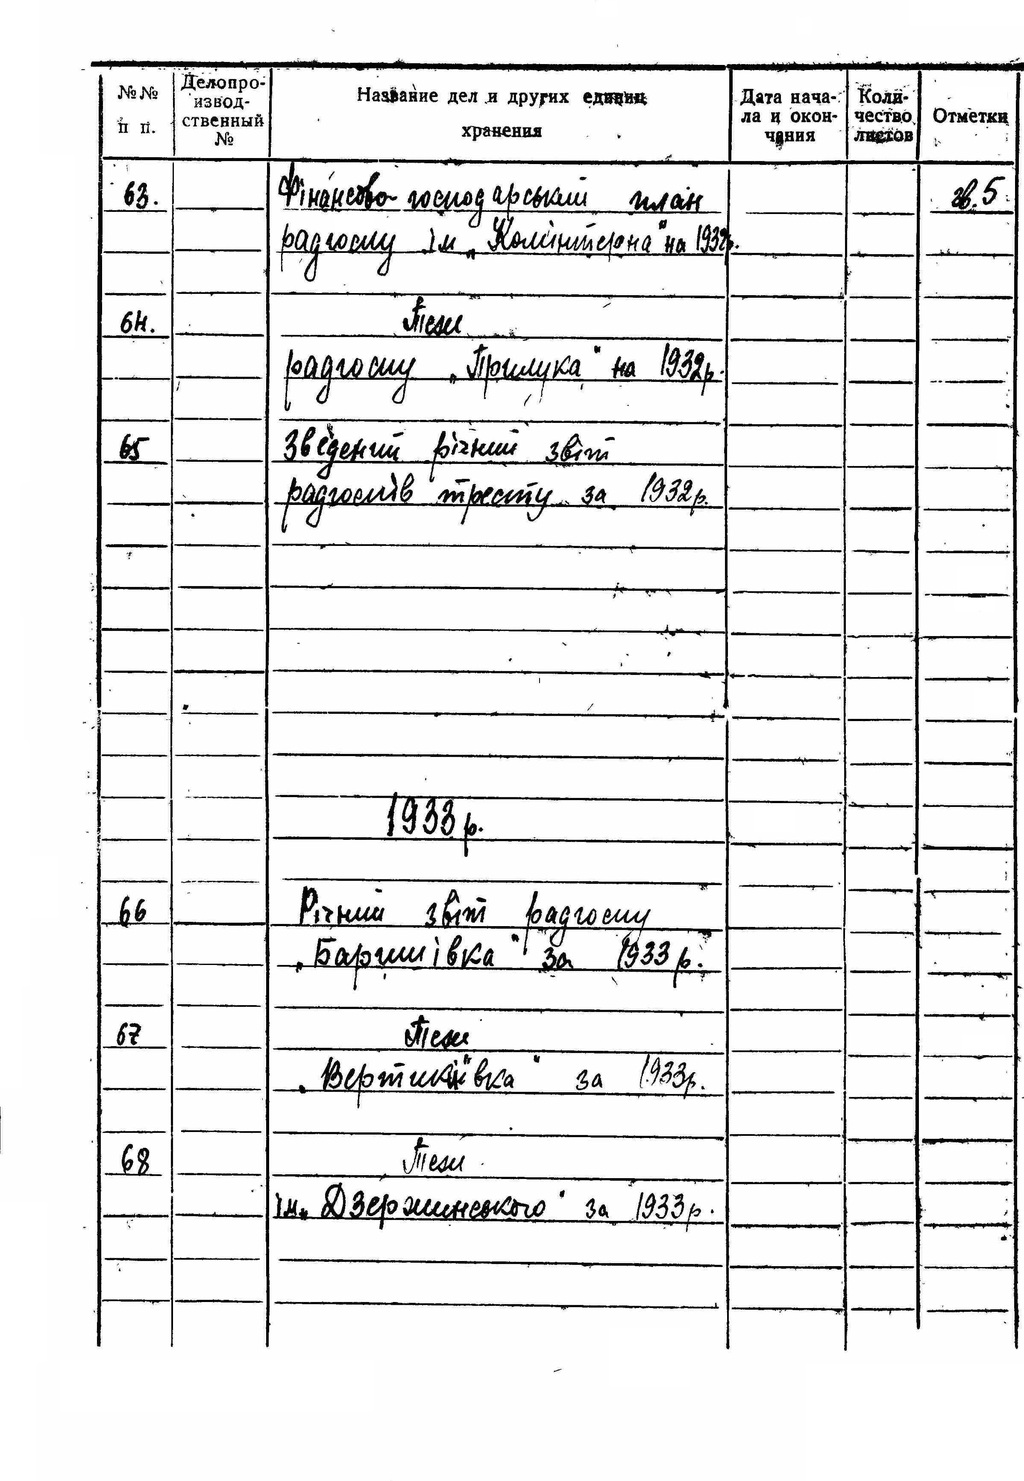 №№ п п.
Делопро-
извод-
ственный
№
Название дел и других единиц
хранения
Дата нача-
ла и окон-
чания
Коли-
чество
листов
Отметки
63. Фінансово-господарський план
радгоспу ім „Комінтерна" на 1932р.
64. Теж
радгоспу „Прилука" на 1932р.
65 Зведений річний звіт
радгоспів тресту за 1932р.
1933 р.
66 Річний звіт радгоспу
за 1933 р.
67 Теж
за 1933р.
68 Теж
ім. Дзержинського" за 1933р.